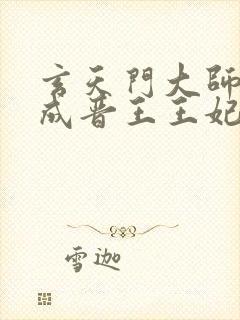 玄天門大師
成晉王王妃
雪迦